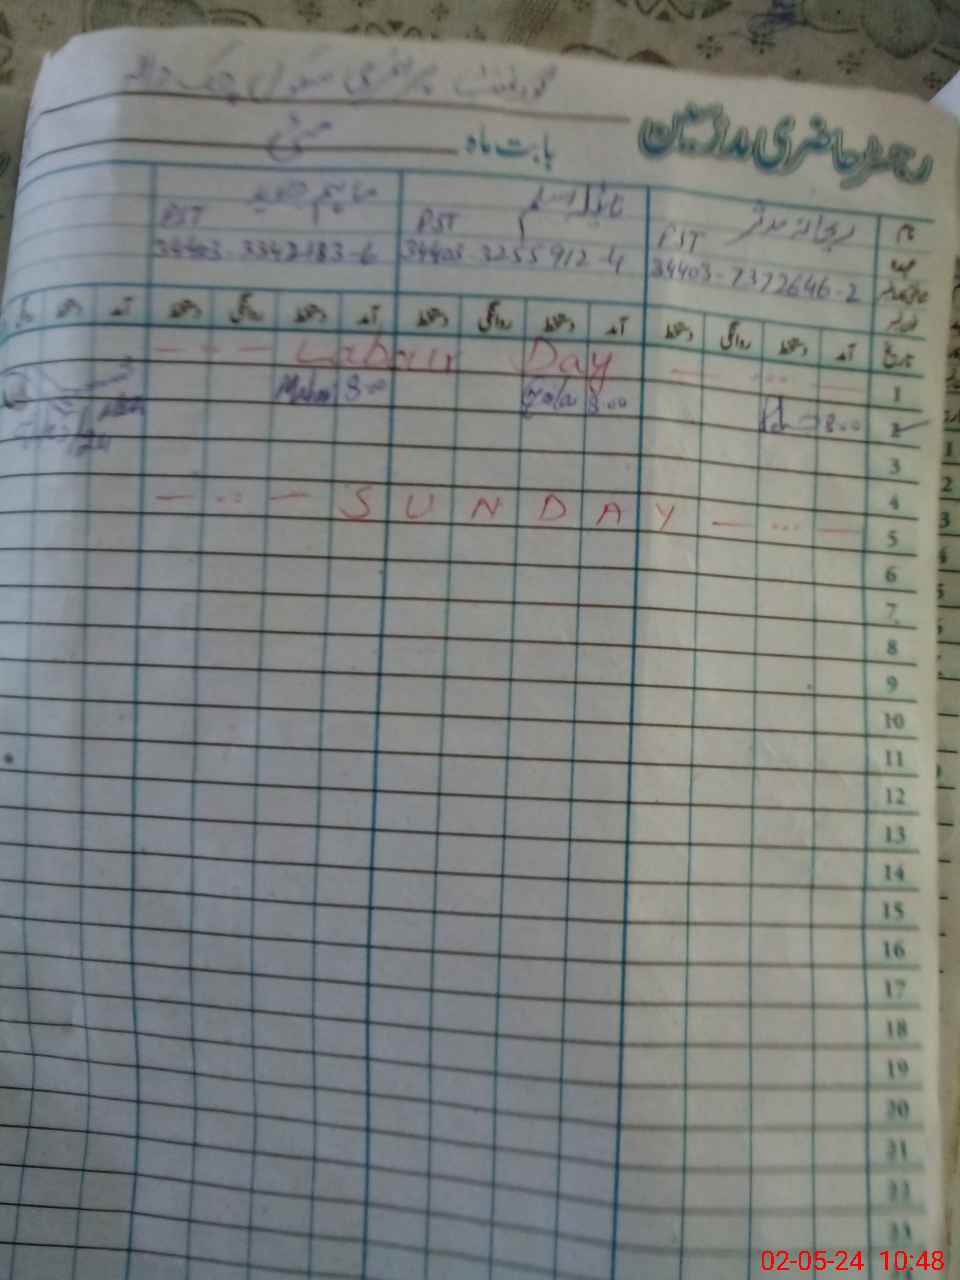 گورنمنٹ پرائمری سکول چک
رجسٹر حاضری مدرسین
بابت ماہ مئی
نام ریحانہ مدثر نائلہ اسلم ماہم جاوید
عہدہ PST PST PST
34403-7372646-2 34403-3255912-4 34403-3342183-6
تاریخ آمد دستخط روانگی دستخط آمد دستخط روانگی دستخط آمد دستخط روانگی دستخط آمد دستخط
1 - - - Labour Day - ... -
2 8:00 8:00 8:00
3
4
5 - .. - S U N D A Y - ... -
6
7
8
9
10
11
12
13
14
15
16
17
18
19
20
21
22
23
02-05-24 10:48